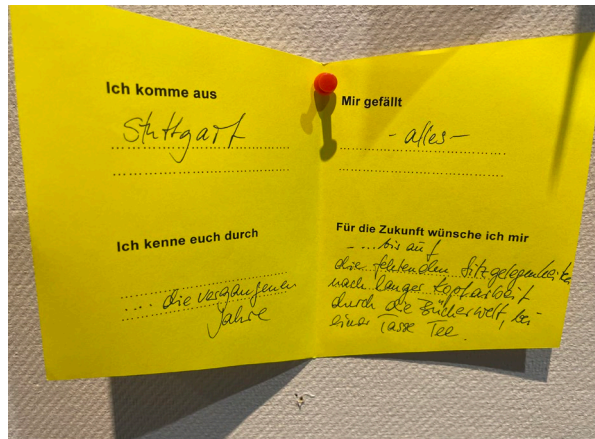 Ich komme aus
Stuttgart
Ich kenne euch durch
... die vergangenen
Jahre
Mir gefällt
- alles -
Für die Zukunft wünsche ich mir
- ... bis auf
die fehlenden Sitzgelegenheiten
nach langer Kopfarbeit
durch die Bücherwelt, bei
einer Tasse Tee.